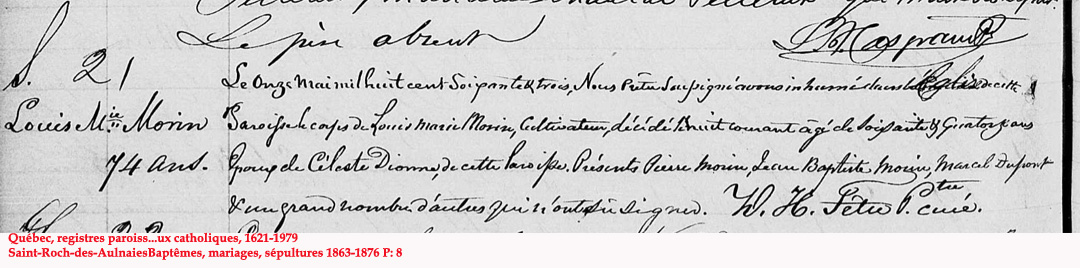 Le père absent
S. 21
Louis Mie Morin
74 ans.
Le Onze Mai mil huit cent Soixante & trois, Nous Prêtre Soussigné avons inhumé dans l'Eglise de cette
Paroisse le corps de Louis Marie Morin, Cultivateur, décédé le huit courant âgé de Soixante & Quatorze ans
Epoux de Céleste Dionne, de cette Paroisse. Présents Pierre Morin, Jean Baptiste Morin, Marcel Dupont
& un grand nombre d'autres qui n'ont su signer. D. H. Têtu Ptre curé.
Québec, registres paroiss...ux catholiques, 1621-1979
Saint-Roch-des-AulnaiesBaptêmes, mariages, sépultures 1863-1876 P: 8